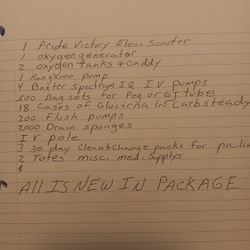 1 Pride Victory Elec. Scooter
1 oxygen generator
2 oxygen tanks & caddy
1 Kangaroo pump
4 Baxter Spectrum IQ I.V pumps
500 Bag sets for Peg or GJ tube
18 Cases of Glucerna 1.5 Carbsteady
200 Flush pumps
2000 Drain sponges
IV pole
3 30 day Clean & Change packs for
2 Totes misc. med. Supplys
All IS NEW IN PACKAGE